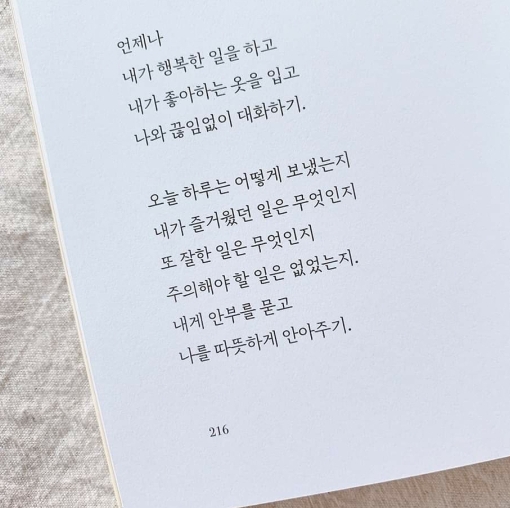 언제나
내가 행복한 일을 하고
내가 좋아하는 옷을 입고
나와 끊임없이 대화하기.
오늘 하루는 어떻게 보냈는지
내가 즐거웠던 일은 무엇인지
또 잘한 일은 무엇인지
주의해야 할 일은 없었는지.
내게 안부를 묻고
나를 따뜻하게 안아주기.
216